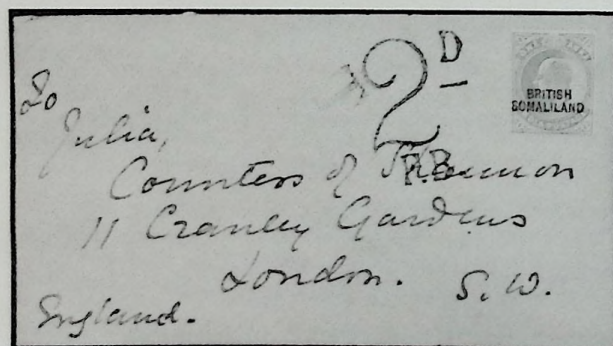 2D
BRITISH
SOMALILAND
To
Julia,
Countess of
F.B.
11 Cranley Gardens
London. S.W.
England.